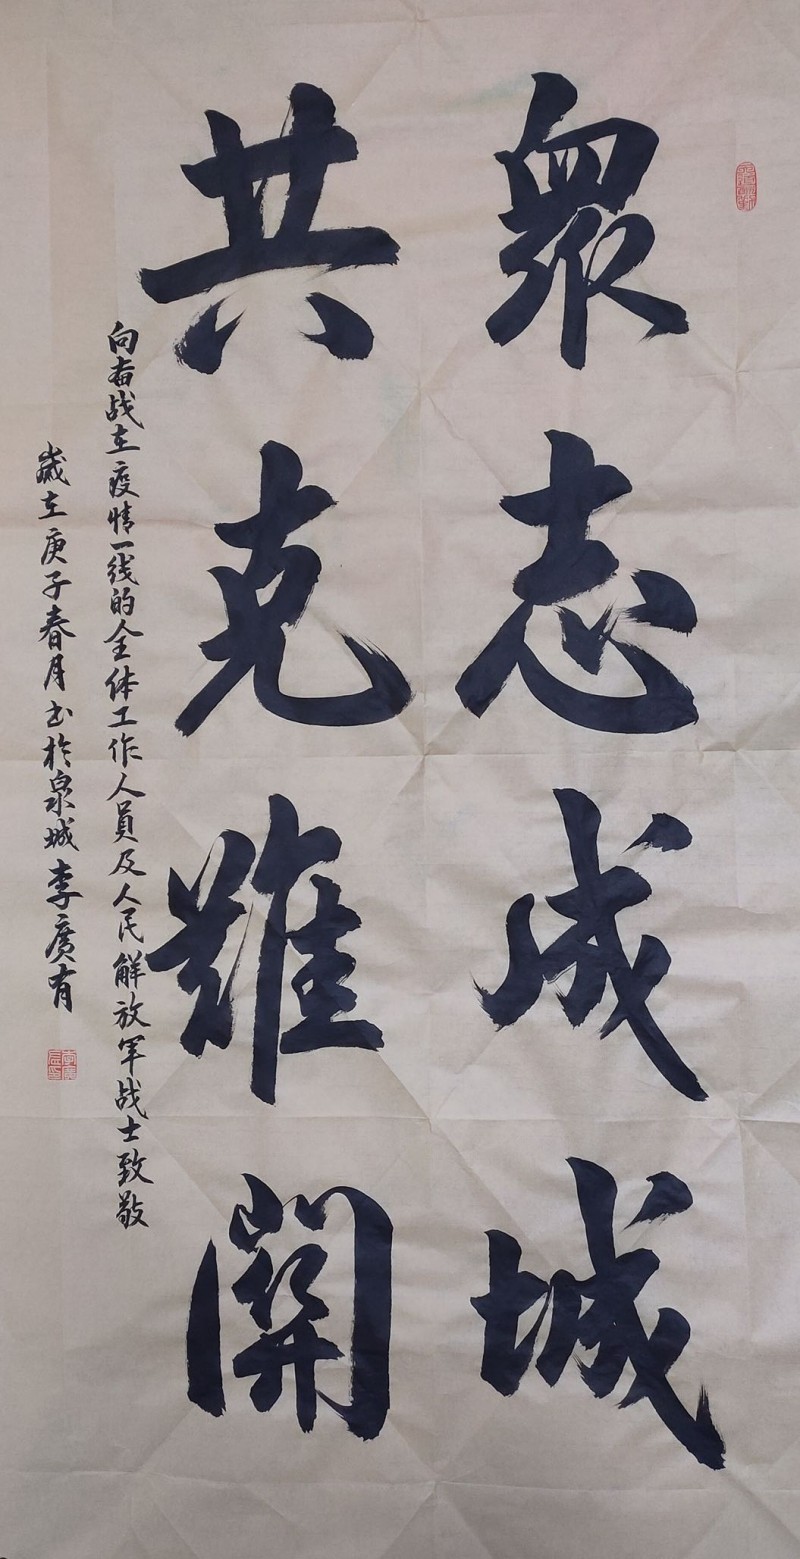 衆志成城
共克難關
向奋战在疫情一线的全体工作人員及人民解放军战士致敬
歲在庚子春月书於泉城李廣有